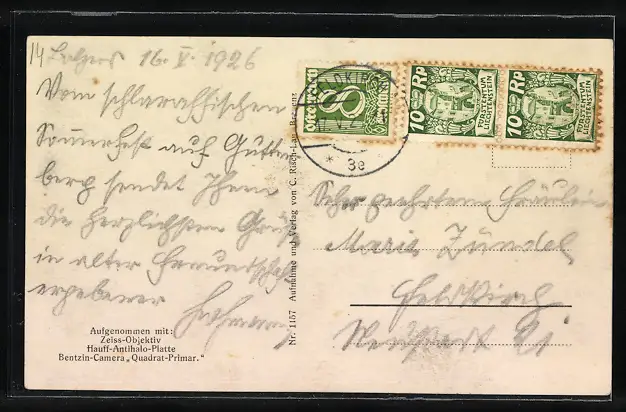 14 Balzers 16. V. 1926
Vom schlaraffischen
Sommerfest auf Gutten
berg sendet Ihnen
die herzlichsten Grüße
in alter Freundschaft
ergebener
Aufgenommen mit:
Zeiss-Objektiv
Hauff-Antihalo-Platte
Bentzin-Camera „Quadrat-Primar."
Nr. 1157 Aufnahme und Verlag von C. Risch-Lau, Bregenz
8
FELDKIRCH
* 3e
10 RP
FÜRSTENTUM
LIECHTENSTEIN
10 RP
FÜRSTENTUM
LIECHTENSTEIN
Sehr geehrten Fräulein
Maria Zündel
Feldkirch